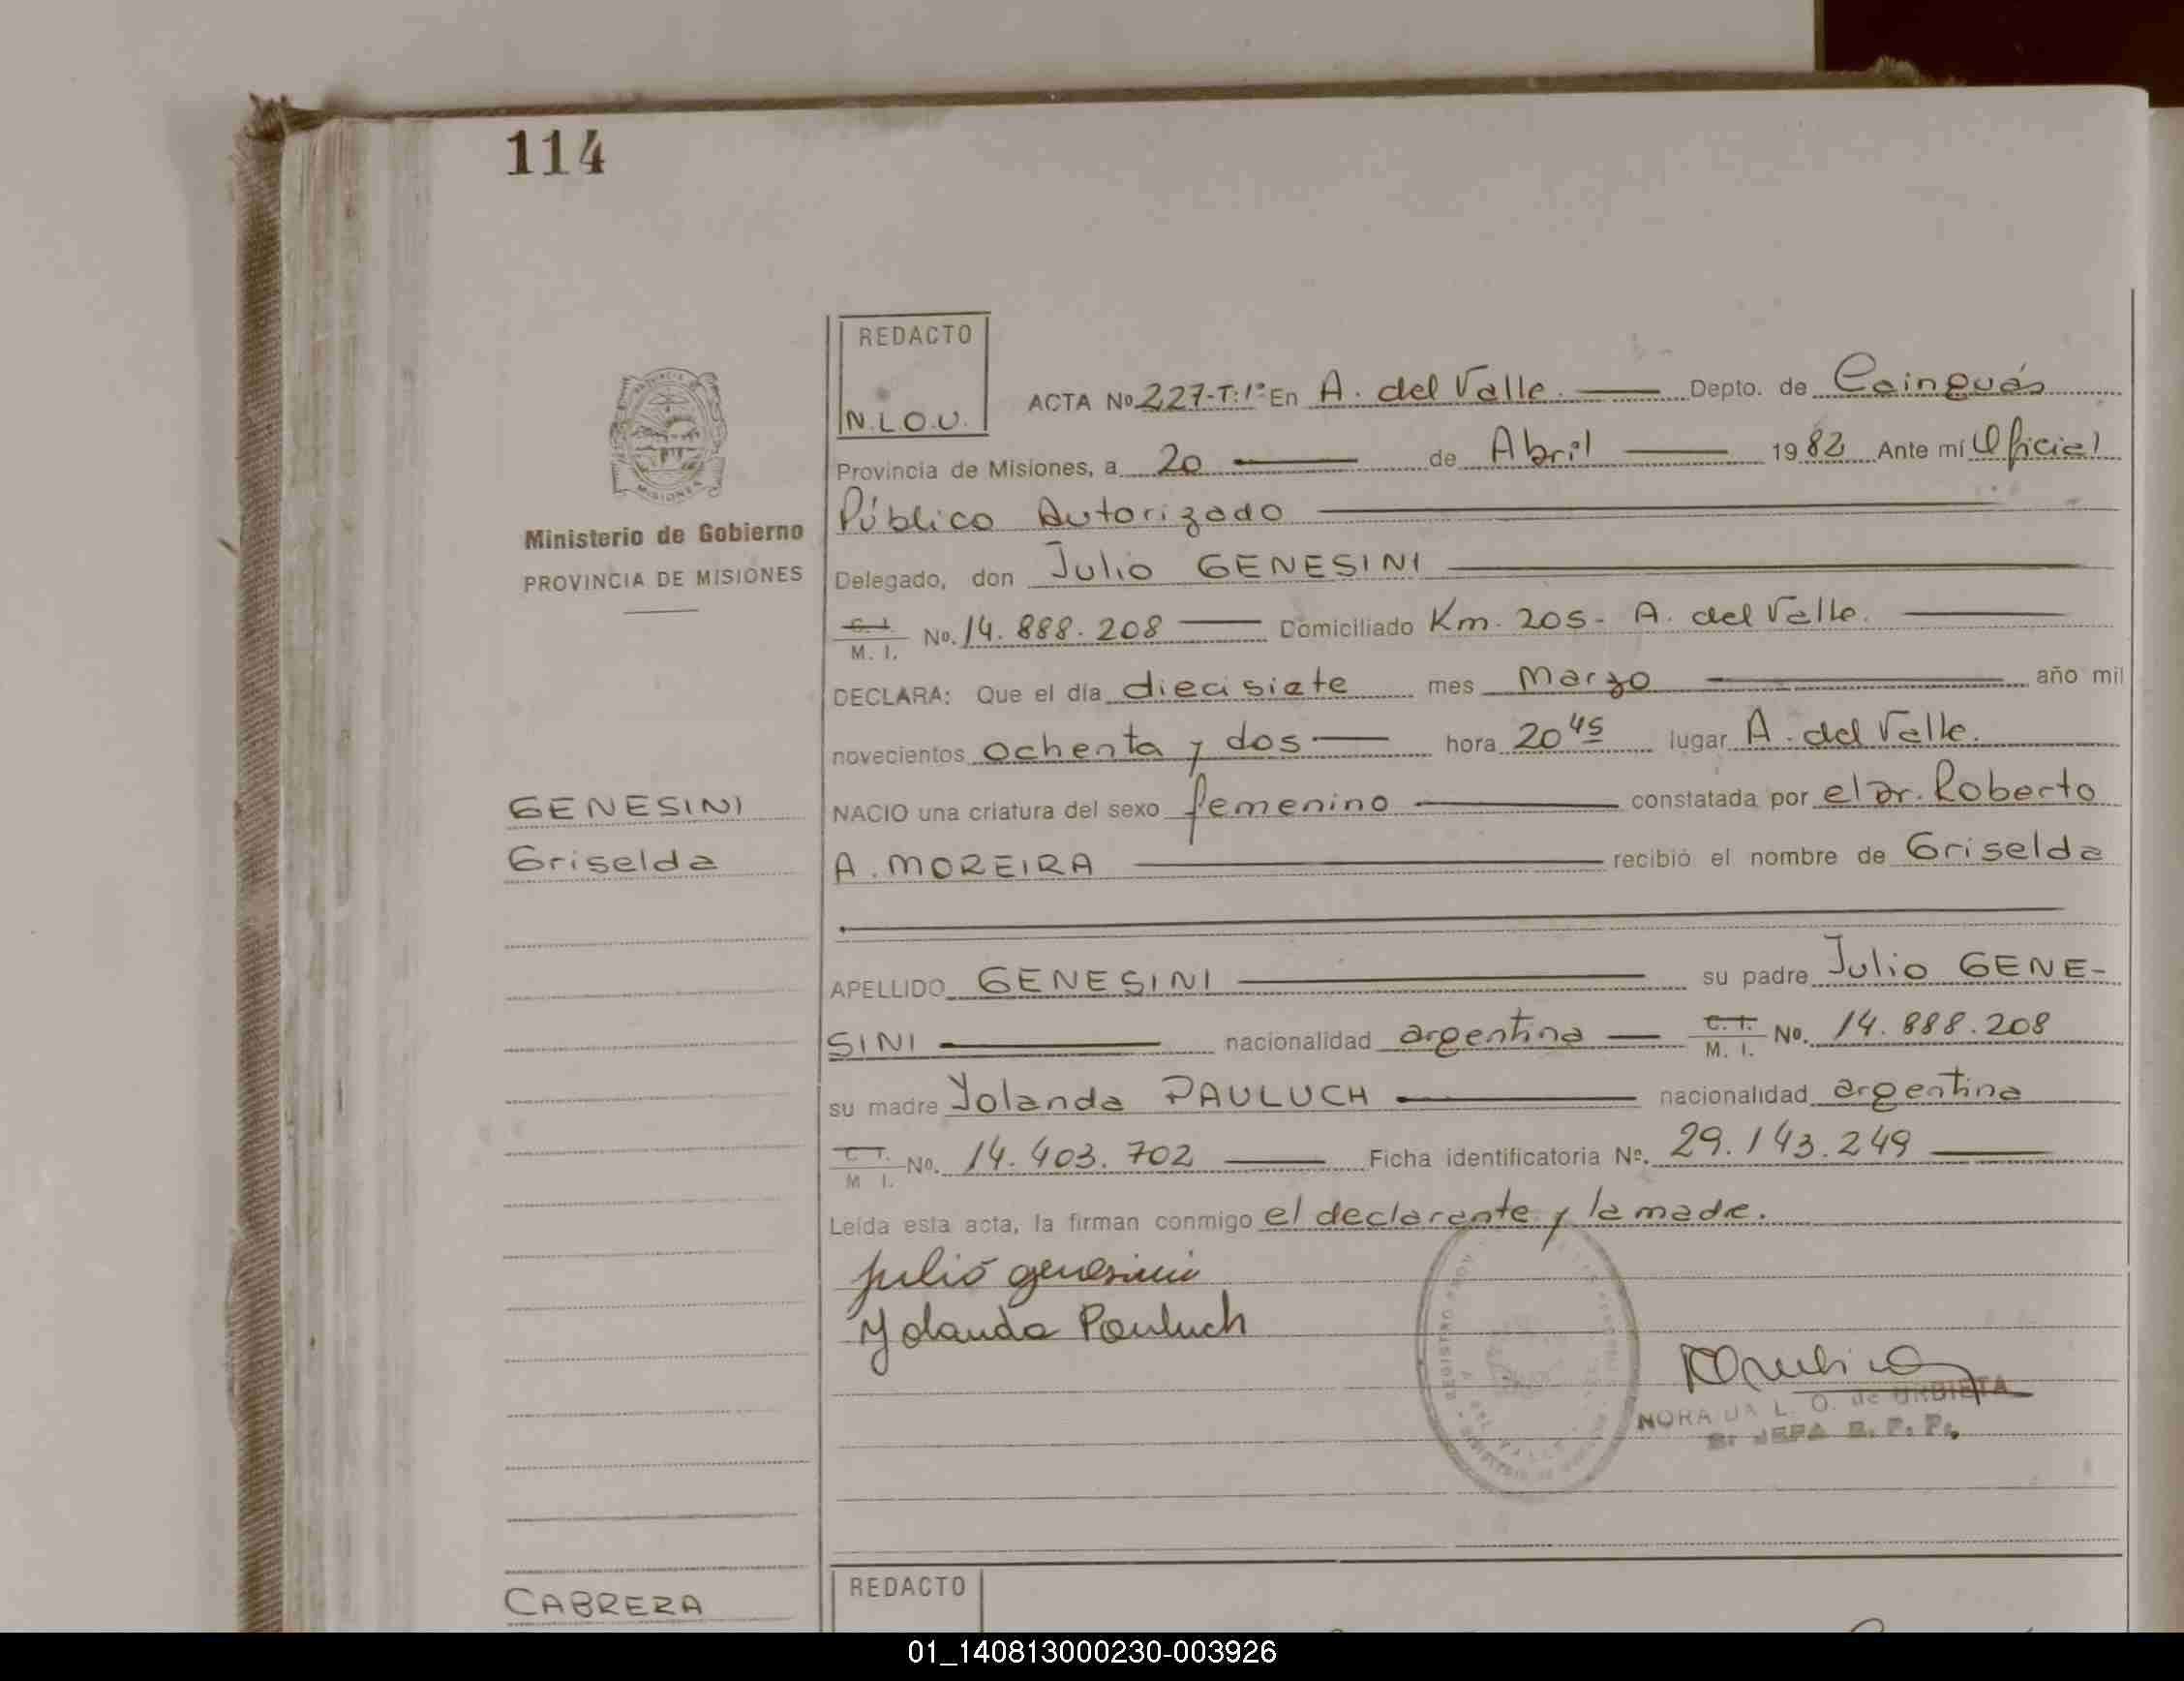 114
REDACTO
N.L.O.U.
ACTA No 227-T:1º En A. del Valle. Depto. de Cainguás
Provincia de Misiones, a 20 de Abril 1982 Ante mí Oficial
Público Autorizado
Ministerio de Gobierno
PROVINCIA DE MISIONES
Delegado, don Julio GENESINI
C. I. M. I. No. 14.888.208 Domiciliado Km. 205- A. del Valle.
DECLARA: Que el día diecisiete mes Marzo año mil
novecientos ochenta y dos hora 20 45 lugar A. del Valle.
GENESINI
Griselda
NACIO una criatura del sexo femenino constatada por el Dr. Roberto
A. MOREIRA recibió el nombre de Griselda
APELLIDO GENESINI su padre Julio GENE-
SINI nacionalidad argentina C. I. M. I. No. 14.888.208
su madre Yolanda PAULUCH nacionalidad argentina
C. I. M. I. No. 14.403.702 Ficha identificatoria Nº. 29.143.249
Leída esta acta, la firman conmigo el declarante y la madre.
Julio genesini
Yolanda Pauluch
L. O. de URBIETA
JEFA
CABRERA
REDACTO
01_140813000230-003926